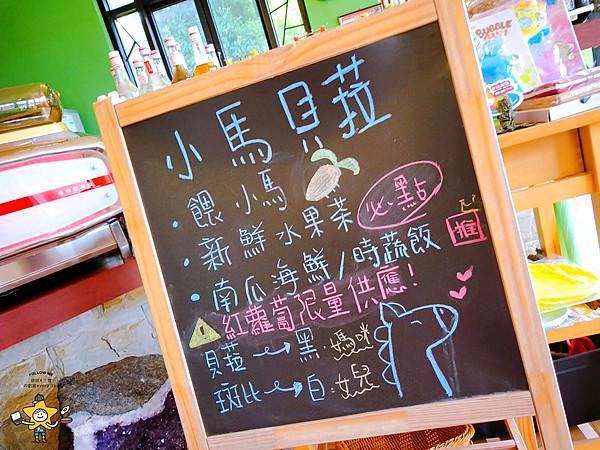 小馬貝菈
·餵小馬
·新鮮水果茶 必點
·南瓜海鮮/時蔬飯
⚠紅蘿蔔限量供應!
貝菈→黑:媽咪
斑比→白:女兒
BUBBLE
FOLLOW ME